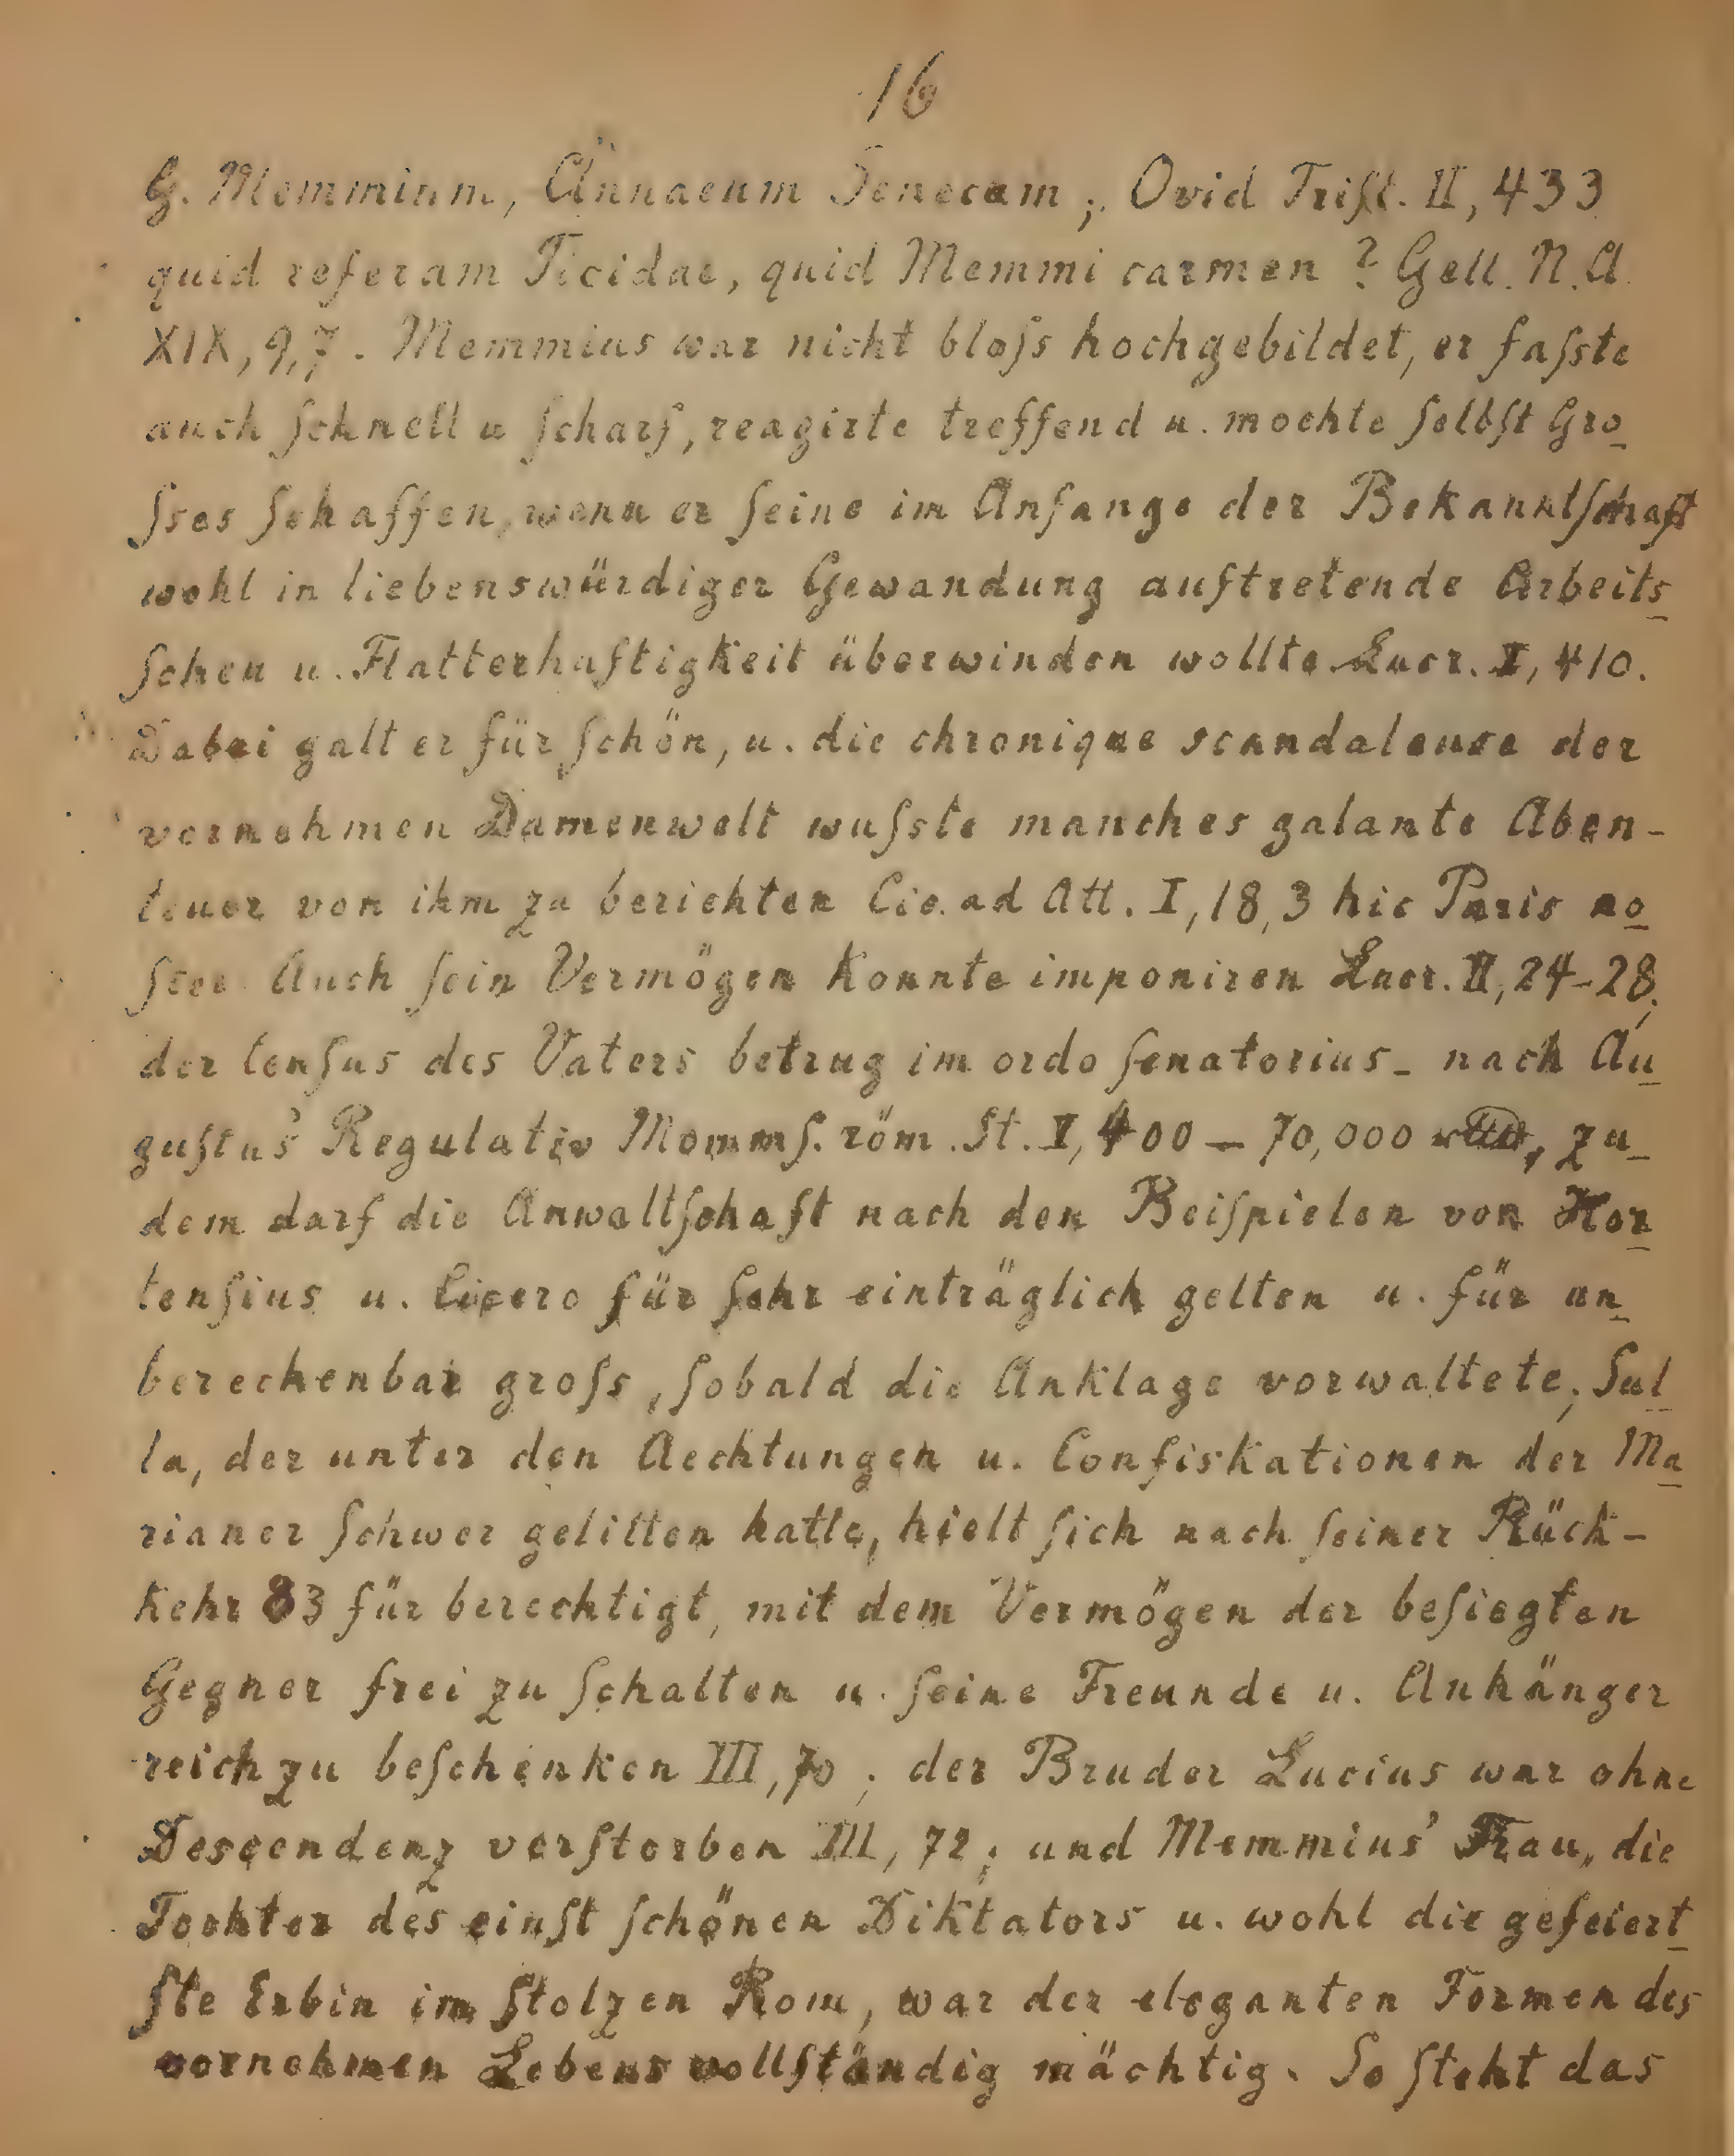 16
G. Memmium, Annaeum Senecam; Ovid Triſt. II, 433
quid referam Ticidae, quid Memmi carmen? Gell. N. A.
XIX, 9,7. Memmius war nicht bloſs hochgebildet, er faſste
auch ſchnell u ſcharf, reagirte treffend u. mochte ſelbſt Gro_
ſses ſchaffen, wenn er ſeine im Anfange der Bekanntſchaft
wohl in liebenswürdiger Gewandung auftretende Arbeits_
ſcheu u. Flatterhaftigkeit überwinden wollte Lucr. I, 410.
Dabei galt er für ſchön, u. die chronique scandaleuse der
vornehmen Damenwelt wuſste manches galante Aben-
teuer von ihm zu berichten Cic. ad Att. I, 18, 3 hic Paris no_
ſter. Auch ſein Vermögen konnte imponiren Lucr. II, 24-28;
der Cenſus des Vaters betrug im ordo ſenatorius_ nach Au_
guſtus' Regulativ Mommſ. röm. St. I, 400 — 70,000 , zu_
dem darf die Anwaltſchaft nach den Beiſpielen von Hor_
tenſius u. Cicero für ſehr einträglich gelten u. für un_
berechenbar groſs, ſobald die Anklage vorwaltete; Sul_
la, der unter den Aechtungen u. Confiskationen der Ma_
rianer ſchwer gelitten hatte, hielt ſich nach ſeiner Rück-
kehr 83 für berechtigt, mit dem Vermögen der beſiegten
Gegner frei zu ſchalten u. ſeine Freunde u. Anhänger
reich zu beſchenken III, 70; der Bruder Lucius war ohne
Descendenz verſtorben III, 72; und Memmius' Frau, die
Tochter des einſt ſchönen Diktators u. wohl die gefeiert_
ſte Erbin im ſtolzen Rom, war der eleganten Formen des
vornehmen Lebens vollſtändig mächtig. So ſteht das